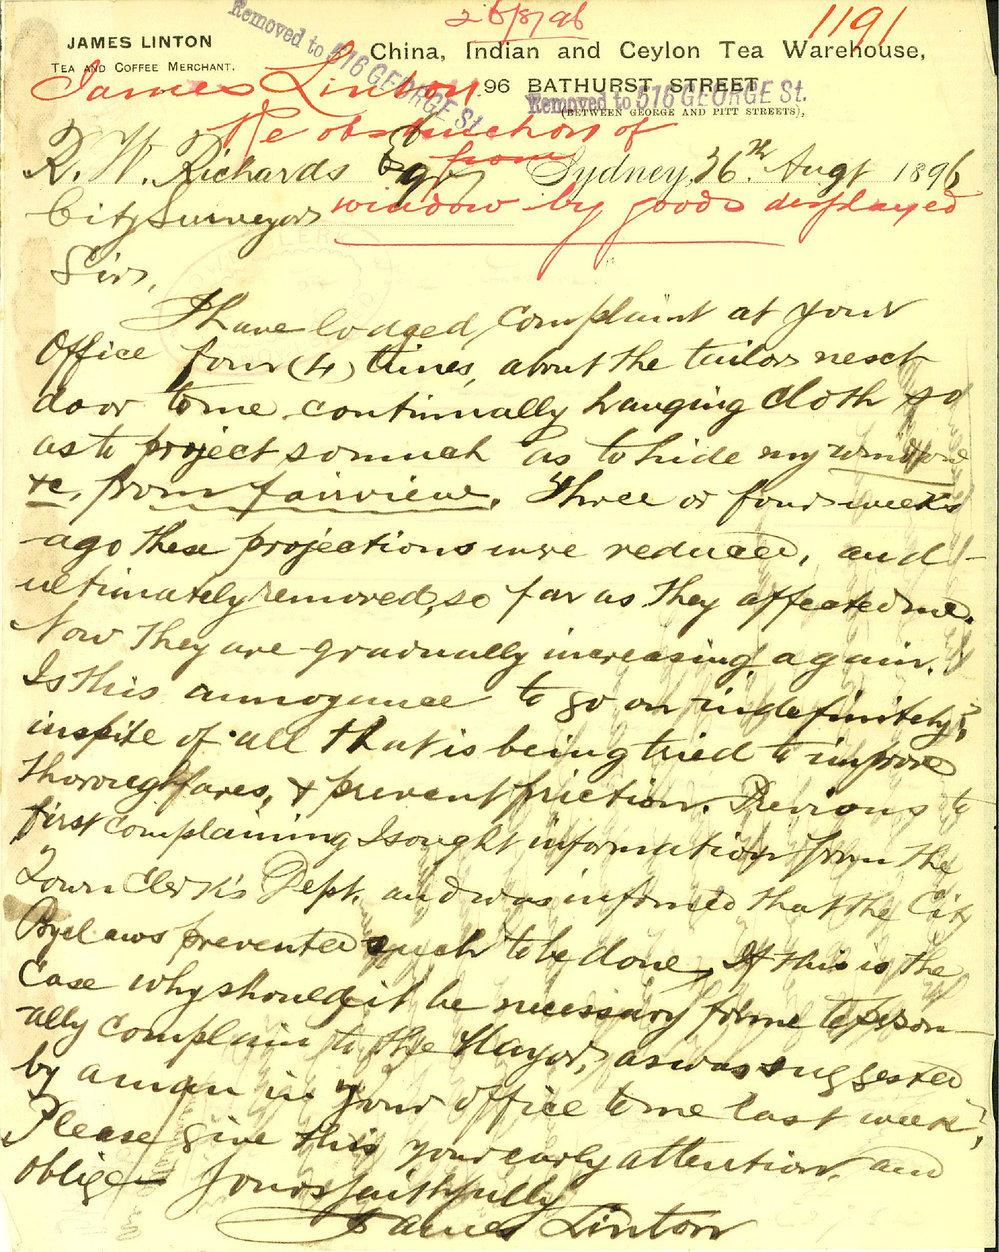 26/8/96
1191
JAMES LINTON
TEA AND COFFEE MERCHANT.
China, Indian and Ceylon Tea Warehouse,
96 BATHURST STREET
(BETWEEN GEORGE AND PITT STREETS),
Removed to 516 GEORGE St.
Removed to 516 GEORGE St.
James Linton
Re obstruction of
from
window by goods displayed
R. W. Richards Esqr
Sydney, 26th Augt 1896
City Surveyor
Sir,
I have lodged complaint at your
Office four (4) times, about the tailor next
door to me continually hanging cloth so
as to project so much as to hide my window
&c, from fair view. Three or four weeks
ago these projections were reduced, and
ultimately removed, so far as they affected me.
Now they are gradually increasing again.
Is this annoyance to go on indefinitely,
inspite of all that is being tried to improve
thoroughfares, & prevent friction. Previous to
first complaining I sought information from the
Town Clerk's Dept. and was informed that the City
Byelaws prevented such to be done, If this is the
Case why should it be necessary for me to person-
ally complain to the Mayor, as was suggested
by a man in your office to me last week?
Please give this your early attention, and
oblige Yours faithfully
James Linton